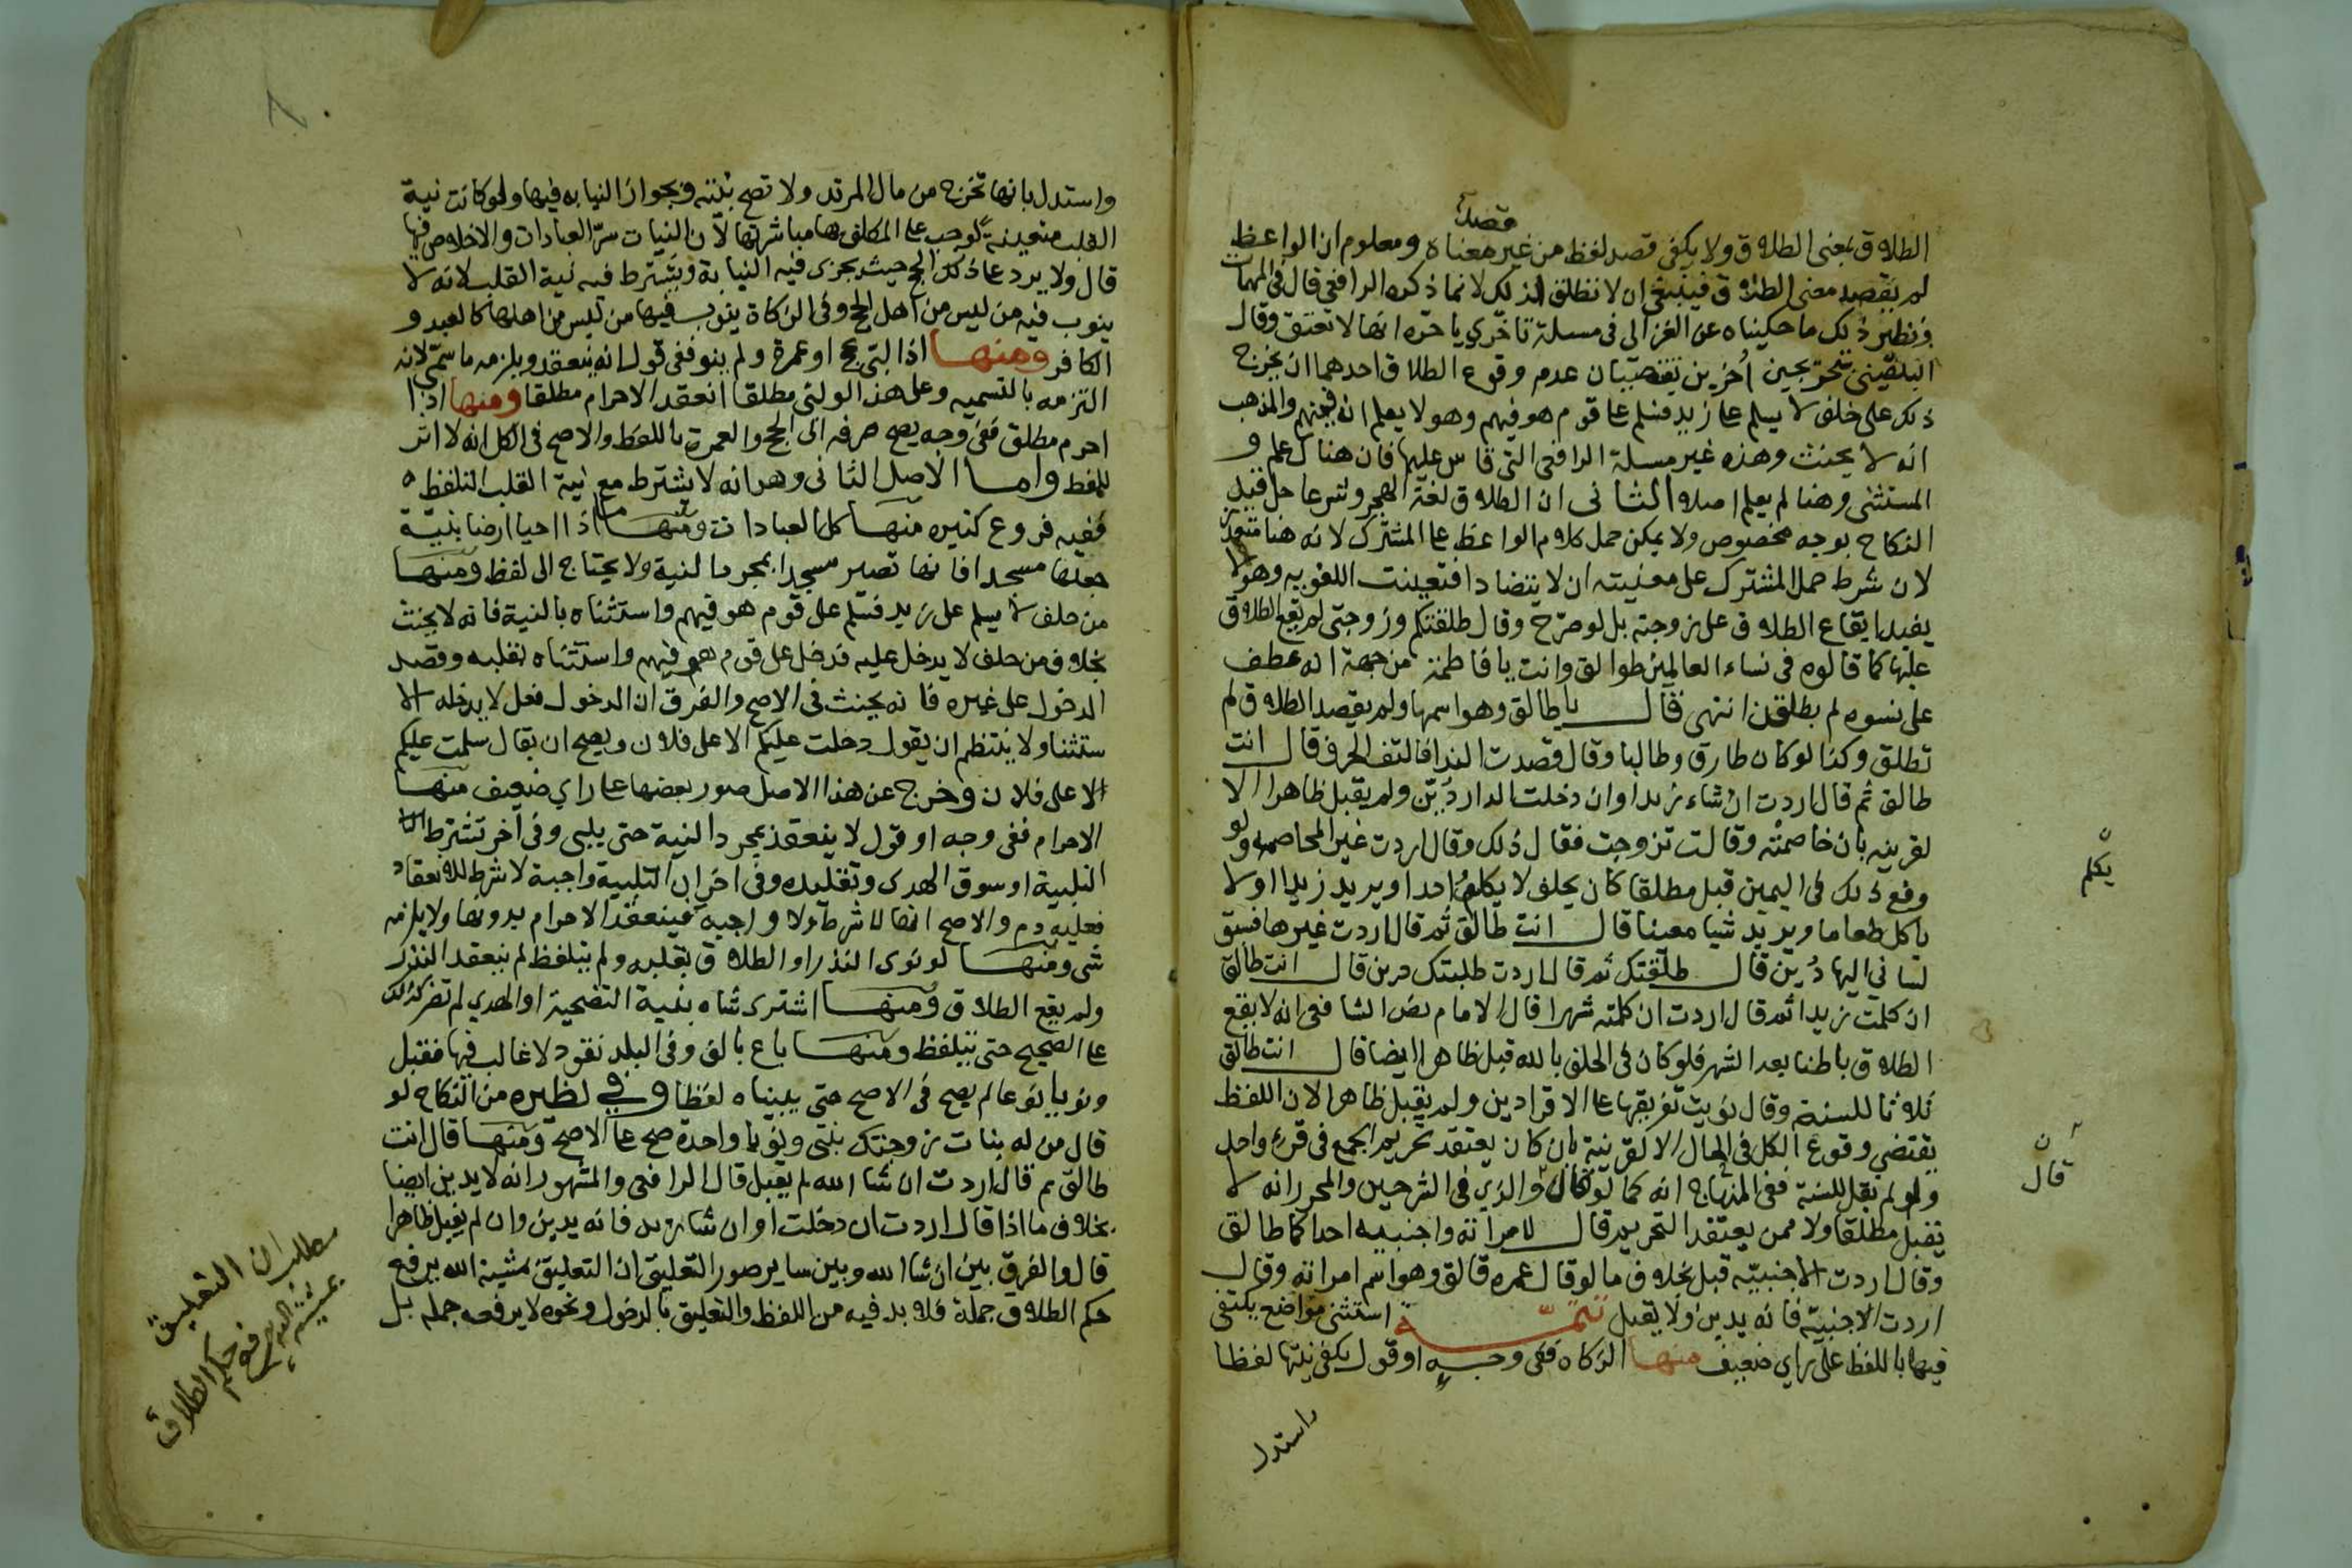 قصد
الطلاق بمعنى الطلاق ولا يكفي قصد لفظ من غير معناه ومعلوم ان الواعظ
لم يقصد معنى الطلاق فينبغي ان لا تطلق لذلك لا لما ذكره الرافعي قال في المهمات
ونظير ذلك ما حكيناه عن الغزالي في مسلة تاخري يا حره انها لا تعتق وقال
البلقيني تتخريجين اخرين يقتضيان عدم وقوع الطلاق احدهما ان يخرج
ذلك على حلف لا يسلم على زيد فسلم على قوم هو فيهم وهو لا يعلم انه فيهم والمذهب
انه لا يحنث وهذه غير مسلة الرافعي التي قاس عليها فان هناك علم و
المستثنى وهنا لم يعلم اصلا الثاني ان الطلاق لغة الهجر وشرعا حل قيد
النكاح بوجه مخصوص ولا يمكن حمل كلام الواعظ على المشترك لانه هنا متعذر
لان شرط حمل المشترك على معنيته ان لا يتضادا فتعينت اللغويه وهو لا
يفيد ايقاع الطلاق على زوجته بل لو صرح وقال طلقتكم وزوجتي لم يقع الطلاق
عليها كما قالوه في نساء العالمين طوالق وانت يا فاطمة من جهة انه عطف
على نسوه لم يطلقن انتهى قال يا طالق وهو اسمها ولم يقصد الطلاق لم
تطلق وكذا لو كان طارق وطالبا وقال قصدت الندا فالتف الحرف قال انت
طالق ثم قال اردت ان شاء زيد او ان دخلت الدار دين ولم يقبل ظاهرا الا
لقرينه بان خاصمته وقالت تزوجت فقال ذلك وقال اردت غير المخاصمه ولو
وقع ذلك في اليمين قبل مطلقا كان يحلف لا يكلم احدا ويريد زيدا او لا
ياكل طعاما ويريد شيا معينا قال انت طالق ثم قال اردت غيرها فسبق
لساني اليها دين قال طلقتك ثم قال اردت طلبتك دين قال انت طالق
ان كلمت زيدا ثم قال اردت ان كلمته شهرا قال الامام نص الشافعي انه لا يقع
الطلاق باطنا بعد الشهر فلو كان في الحلف بالله قبل ظاهرا ايضا قال انت طالق
ثلاثا للسنة وقال نويت تفريقها على الاقرا دين ولم يقبل ظاهرا لان اللفظ
يقتضي وقوع الكل في الحال الا لقرنية بان كان يعتقد تحريم الجمع في قرء واحد
ولو لم يقل للسنة ففي المنهاج انه كما لو قال والذي في الشرحين والمحرر انه لا
يقبل مطلقا ولا ممن يعتقد التحريم قال لامراته واجنبيه احداكما طالق
وقال اردت الاجنبيه قبل بخلاف ما لو قال عمره طالق وهو اسم امراته وقال
اردت الاجنبيه فانه يدين ولا يقبل تتمة استثنى مواضع يكتفى
فيها باللفظ على راي ضعيف منها الزكاه ففي وجه او قول يكفي نيتها لفظا
واستدل
يكلم
قال
واستدل بانها تخرج من مال المرتد ولا تصح نيته وبجواز النيابه فيها ولو كانت نية
القلب متعينة لوجب على المكلف بها مباشرتها لان النيات سر العبادات والاخلاص فيها
قال ولا يرد على ذلك الحج حيث يجزى فيه النيابة ويشترط فيه نية القلب لانه لا
ينوب فيه من ليس من اهل الحج وفي الزكاة ينوب فيها من ليس من اهلها كالعبد و
الكافر ومنها اذا لبى بحج او عمرة ولم ينو ففي قول انه ينعقد ويلزمه ما سمى لانه
التزمه بالتسميه وعلى هذا لو لبى مطلقا انعقد الاحرام مطلقا ومنها اذا
احرم مطلق ففي وجه يصح صرفه الى الحج والعمرة باللفظ والاصح في الكل انه لا اثر
للفظ واما الاصل الثاني وهو انه لا يشترط مع نية القلب التلفظ
ففيه فروع كثيره منها كل العبادات ومنها اذا احيا ارضا بنية
جعلها مسجدا فانها تصير مسجدا بمجرد النية ولا يحتاج الى لفظ ومنها
من حلف لا يسلم على زيد فسلم على قوم هو فيهم واستثناه بالنية فانه لا يحنث
بخلاف من حلف لا يدخل عليه فدخل على قوم هو فيهم واستثناه بقلبه وقصد
الدخول على غيره فانه يحنث في الاصح والفرق ان الدخول فعل لا يدخله الا
ستثنا ولا ينتظم ان يقول دخلت عليكم الا على فلان ويصح ان يقال سلمت عليكم
الا على فلان وخرج عن هذا الاصل صور بعضها على راي ضعيف منها
الاحرام ففي وجه او قول لا ينعقد بمجرد النية حتى يلبى وفي اخر تشترط
التلبية او سوق الهدى وتقليده وفي اخر ان التلبية واجبة لا شرط للانعقاد
فعليه دم والاصح انها لا شرط ولا واجبه فينعقد الاحرام بدونها ولا يلزمه
شي ومنها لو نوى النذر او الطلاق بقلبه ولم يتلفظ لم ينعقد النذر
ولم يقع الطلاق ومنها اشترى شاه بنية التضحية او الهدي لم تصر كذلك
على الصحيح حتى يتلفظ ومنها باع بالف وفي البلد نقود لا غالب فيها فقبل
ونويا نوعا لم يصح في الاصح حتى يبيناه لفظا وفي نظيره من النكاح لو
قال من له بنات زوجتك بنتي ونويا واحدة صح على الاصح ومنها قال انت
طالق ثم قال اردت ان شا الله لم يقبل قال الرافعي والمشهور انه لا يدين ايضا
بخلاف ما اذا قال اردت ان دخلت او ان شا زيد فانه يدين وان لم يقبل ظاهرا
قال والفرق بين ان شا الله وبين ساير صور التعليق ان التعليق بمشية الله يرفع
حكم الطلاق جملة فلا بد فيه من اللفظ والتعليق بالدخول ونحوه لا يرفعه جمله بل
مطلب ان التعليق
بمشية الله يرفع
حكم الطلاق